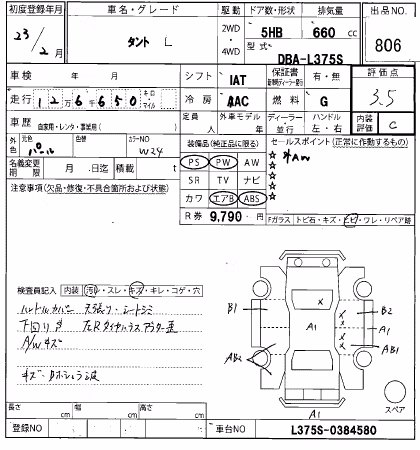 初度登録年月 車名・グレード 駆動 ドア数・形状 排気量 出品NO.
23 年 2 月 タント L 2WD ・ 4WD 5HB 660 cc 806
型式 DBA-L375S
車検 年 月 シフト IAT 保証書 有・無 評価点
走行 12万6千650 キロ マイル 冷房 AAC 燃料 G 3.5
車歴 自家用・レンタ・事業用( ) 定員 人 外車モデル 年 ディーラー 並行 ハンドル 左・右 内装評価 C
外色 元色 パール 色替 カラーNO W24 装備品(純正品に限る) セールスポイント(正常に作動するもの)
名義変更期限 月 日迄 積載 t PS PW AW ☆ 社AW
注意事項(欠品・修復・不具合箇所および状態) SR TV ナビ ☆
カワ エアB ABS ☆
R券 9,790 円 Fガラス トビ石・キズ・ヒビ・ワレ・リペア跡
検査員記入 内装 汚レ・スレ・キズ・キレ・コゲ・穴
ハンドルカバー シートシミ
下回りサビ
A/Wキズ
B1 X B2
A1 A1
AB2 AB1
A1
スペア
長さ cm 幅 cm 高さ cm
登録NO 車台NO L375S-0384580